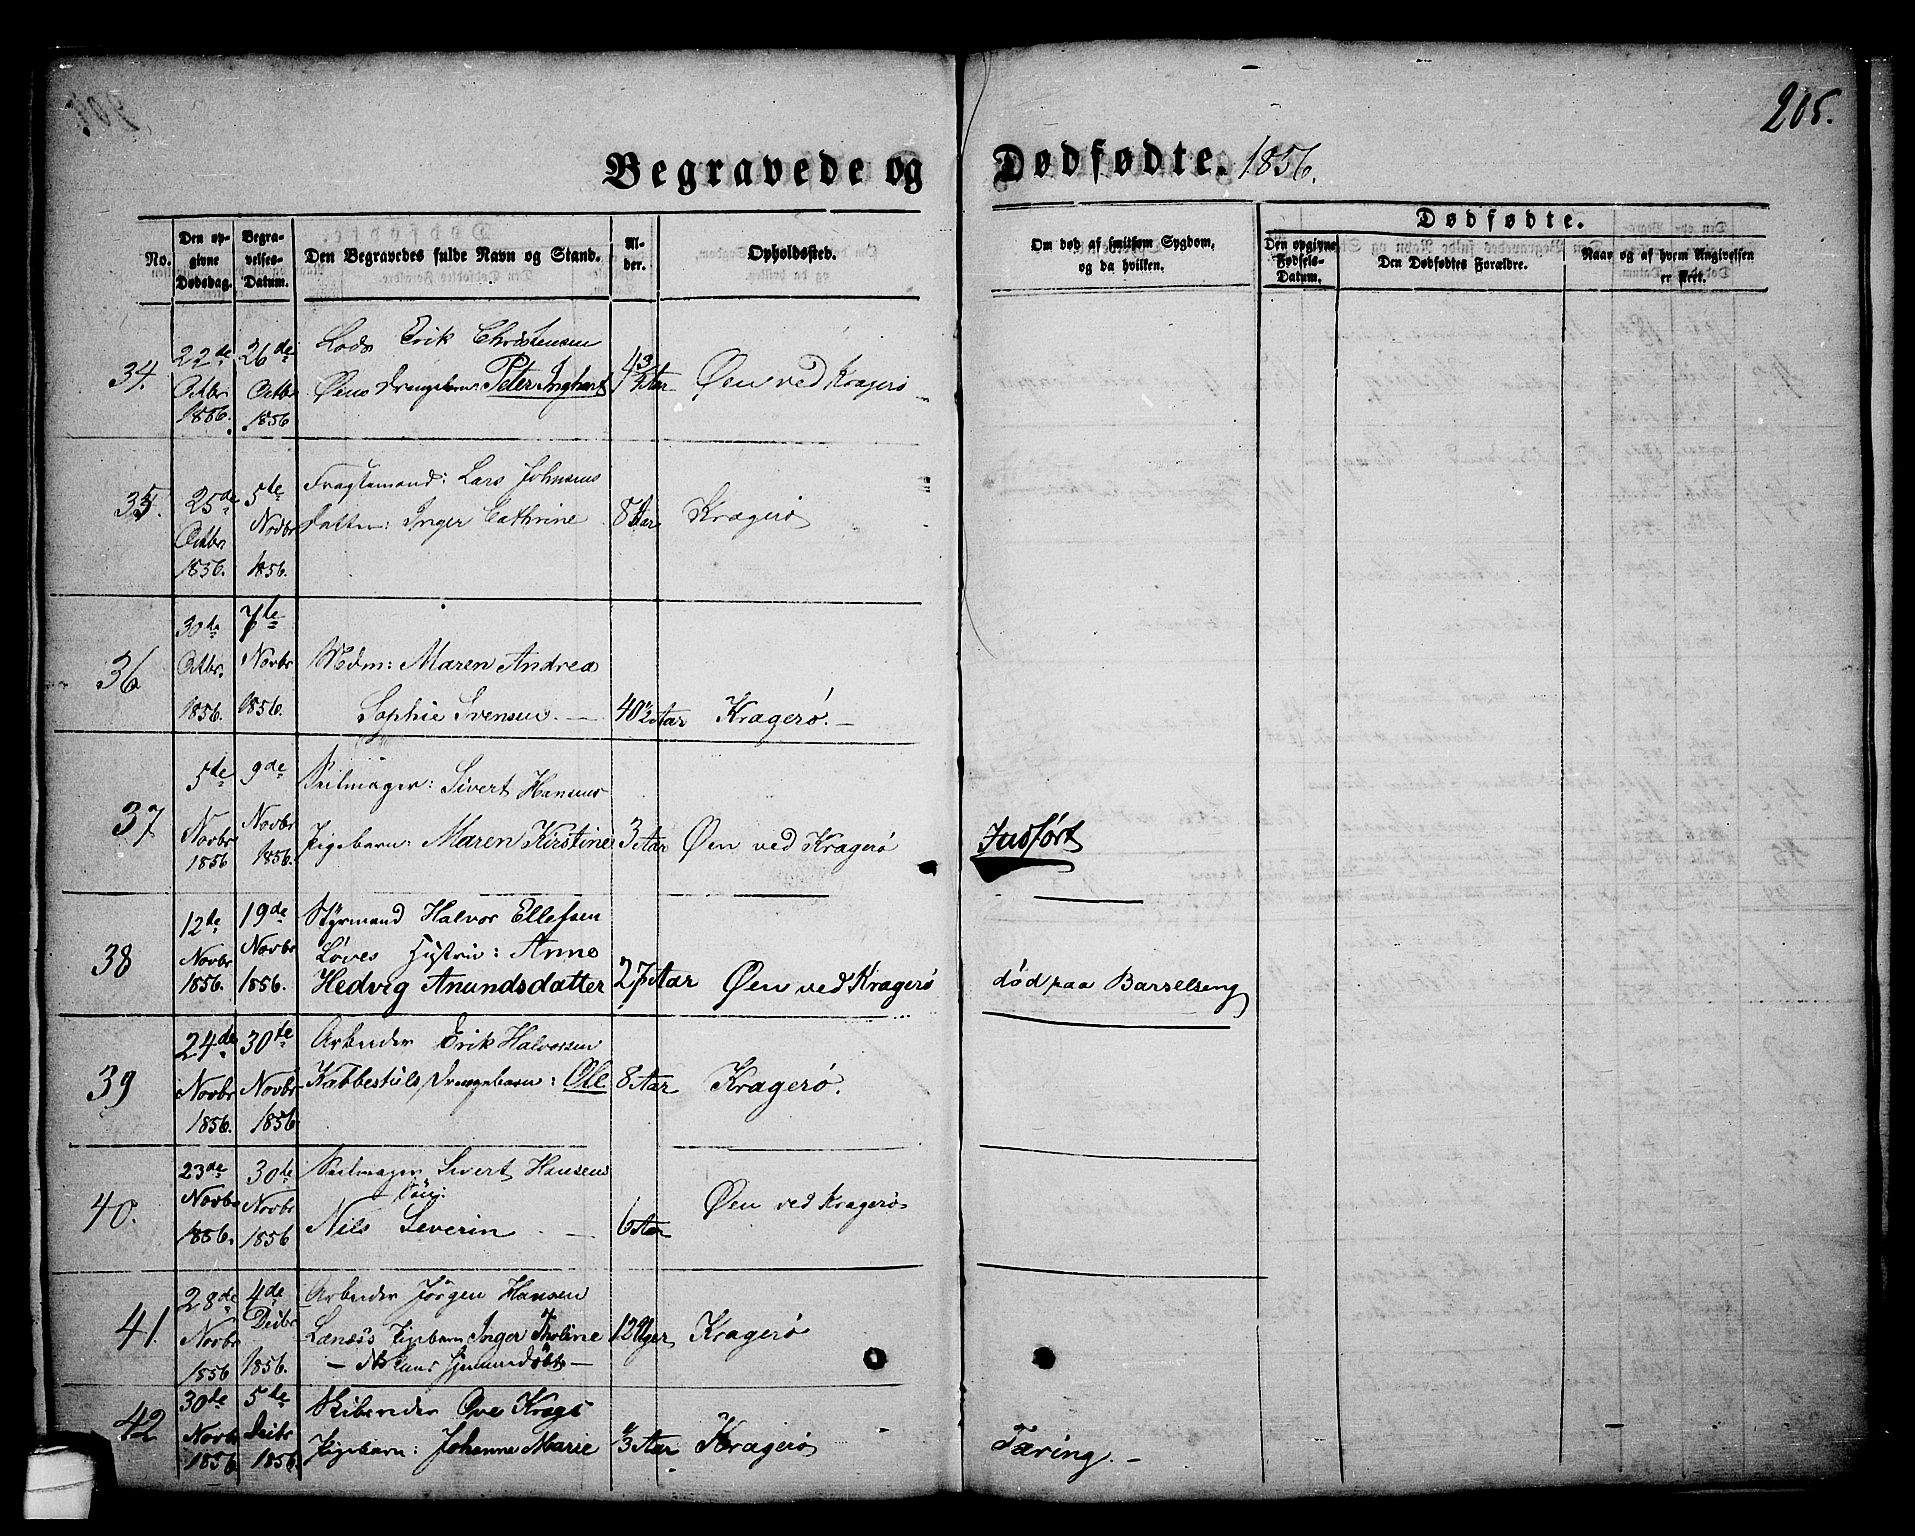 205.
Begravede og Dødfødte. 1856.
No.
Den opgivne Dødsdag.
Begravelses-Datum.
Den Begravedes fulde Navn og Stand.
Alder.
Opholdssted.
Om død af smitsom Sygdom, og da hvilken.
Dødfødte.
Den opgivne Fødsels-Datum.
Den Dødfødtes Forældre.
Naar og af hvem Angivelsen er skeet.
34.
22de Octbr 1856.
26de Octbr 1856
Lods Erik Christensen
Øens Drengebarn: Peter Inghart
Aar
Øen ved Kragerø
35.
25de Octbr 1856.
5te Novbr 1856.
Fragtemand: Lars Johnsens
Datter: Inger Cathrine
8 Aar
Kragerø
36
30te Octbr. 1856.
7de Novbr 1856.
Madm: Maren Andrea
Sophie Svensen. —
40½ Aar
Kragerø. —
37
5te Novbr 1856
9de Novbr 1856.
Seilmager: Sivert Hansens
Pigebarn: Maren Kirstine
3 Aar
Øen ved Kragerø
Indført
38
12te Novbr 1856.
19de Novbr 1856.
Styrmand Halvor Ellefsen
Løves Hustrue: Anne
Hedvig Anundsdatter
27 Aar
Øen ved Kragerø
død paa Barselseng
39
24de Novbr 1856.
30te Novbr 1856.
Arbeider Erik Halvorsen
Kabbestuls Drengebarn: Ole
8 Aar
Kragerø.
40.
23de Novbr 1856.
30te Novbr 1856
Seilmager Sivert Hansens
Søn:
Nils Severin —
6 Aar
Øen ved Kragerø
41.
28de Novbr 1856
4de Decbr 1856.
Arbeider Jørgen Hansen
Pigebarn Inger Tholine
12 Uger
Kragerø
42
30te Novbr 1856
5te Decbr 1856.
Skibereder Ove Krogs
Pigebarn: Johanne Marie
Aar
Kragerø
Tæring. —